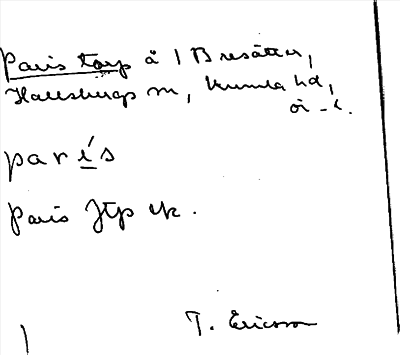 Paris torp å 1 B resätter,
Hallsbergs sn, Kumla hd,
ör-l.
par í s
Paris Jtp ek.
T. Ericsson